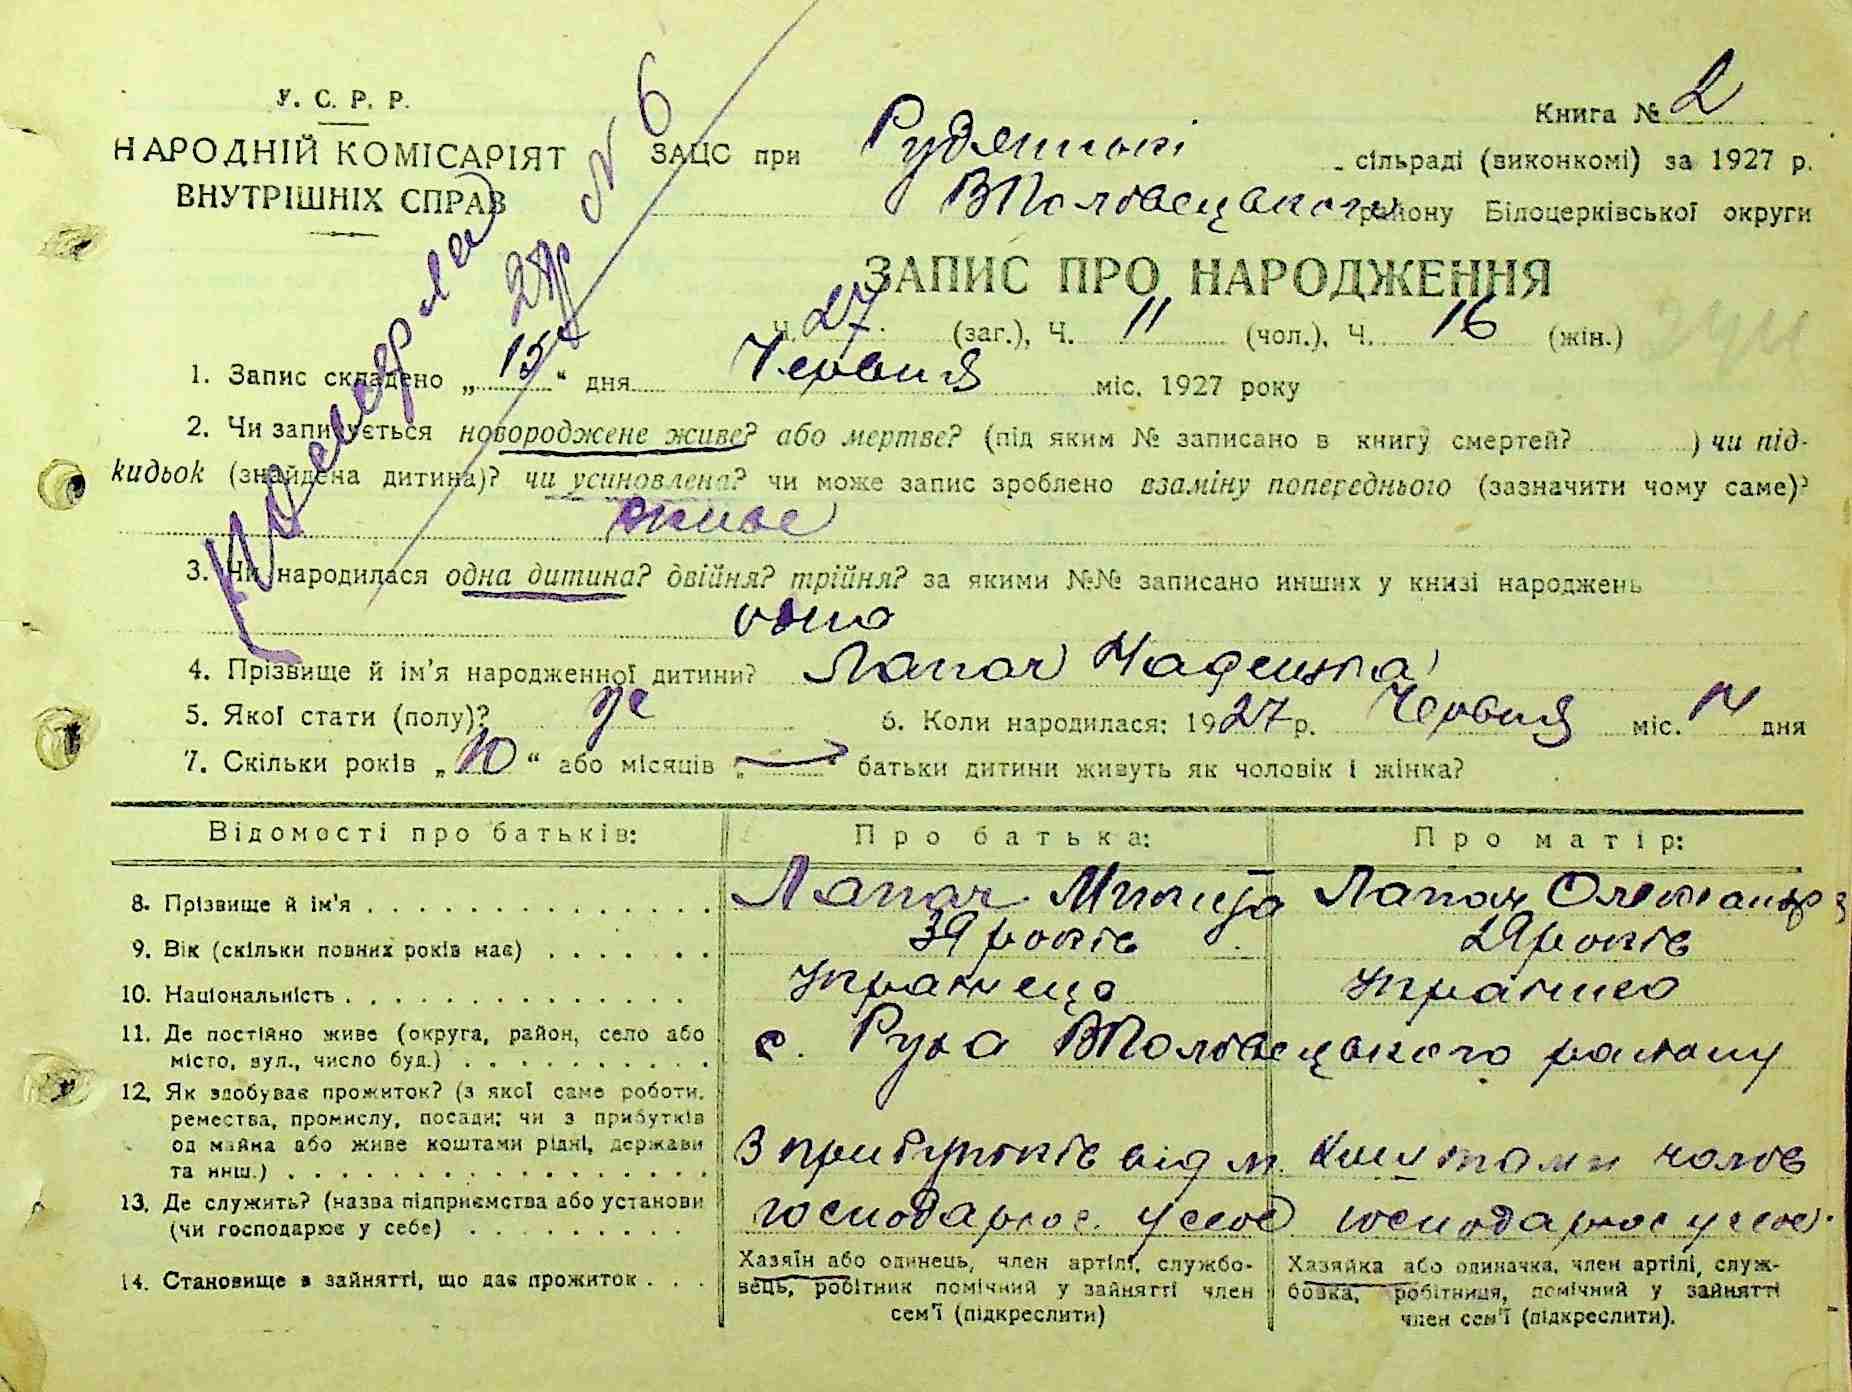 У. С. Р. Р.
НАРОДНІЙ КОМІСАРІЯТ
ВНУТРІШНІХ СПРАВ
Книга № 2
ЗАЦС при Рудянські сільраді (виконкомі) за 1927 р.
ВПоловецького району Білоцерківської округи
№ 6
ЗАПИС ПРО НАРОДЖЕННЯ
Ч. 27 (заг.), Ч. 11 (чол.), Ч. 16 (жін.)
1. Запис складено „ 15 “ дня Червня міс. 1927 року
2. Чи записується новороджене живе? або мертве? (під яким № записано в книгу смертей? ) чи під-
кидьок (знайдена дитина)? чи усиновлена? чи може запис зроблено взаміну попереднього (зазначити чому саме)?
живе
3. Чи народилася одна дитина? двійня? трійня? за якими №№ записано инших у книзі народжень
одна
4. Прізвище й ім'я народженної дитини? Лапач Надежда
5. Якої стати (полу)? же 6. Коли народилася: 1927 р. Червня міс. 14 дня
7. Скільки років „ 10 “ або місяців „ — “ батьки дитини живуть як чоловік і жінка?
Відомості про батьків: Про батька: Про матір:
8. Прізвище й ім'я Лапач Лапач Олександра
9. Вік (скільки повних років має) 39 років 29 років
10. Національність
11. Де постійно живе (округа, район, село або
місто, вул., число буд.) с. Руда ВПоловецького району
12. Як здобуває прожиток? (з якої саме роботи,
ремества, промислу, посади; чи з прибутків
од майна або живе коштами рідні, держави
та инш.) З прибутків від м. Коштами чолов
13. Де служить? (назва підприємства або установи
(чи господарює у себе) господарює у себе господарює у себе
14. Становище в зайнятті, що дає прожиток
Хазяїн або одинець, член артілі, службо-
вець, робітник помічний у зайнятті член
сем'ї (підкреслити)
Хазяйка або одиначка, член артілі, служ-
бовка, робітниця, помічний у зайнятті
член сем'ї (підкреслити).